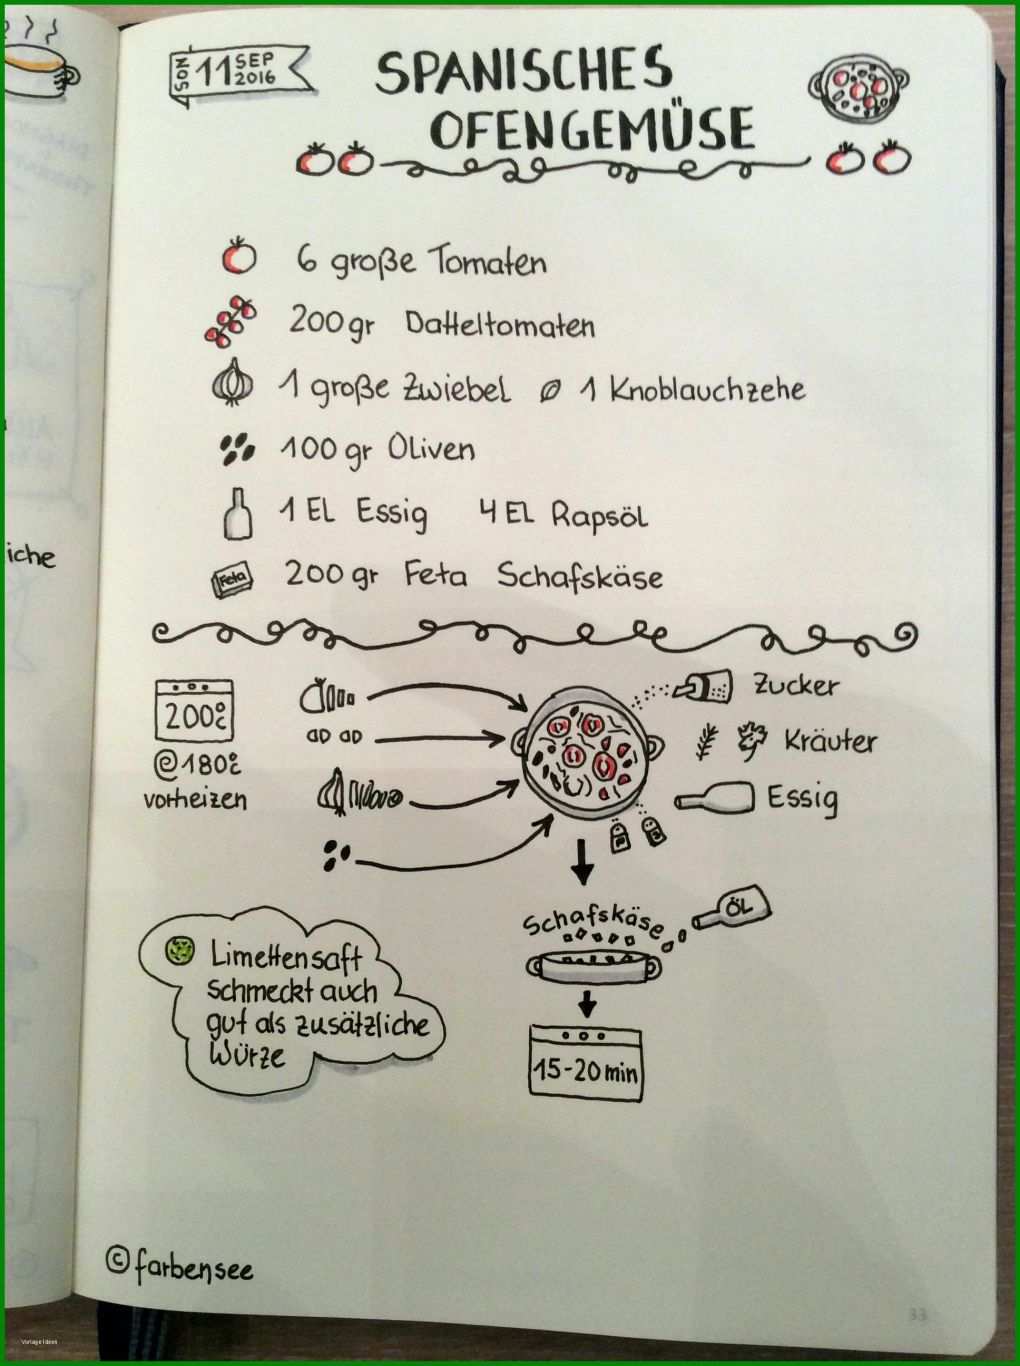 SON 11 SEP 2016
SPANISCHES
OFENGEMÜSE
6 große Tomaten
200gr Datteltomaten
1 große Zwiebel 1 Knoblauchzehe
100 gr Oliven
1 EL Essig 4 EL Rapsöl
Feta 200 gr Feta Schafskäse
iche
200°C
@180°C
vorheizen
Zucker
Kräuter
Essig
Schafskäse
ÖL
15-20 min
Limettensaft
schmeckt auch
gut als zusätzliche
Würze
© farbensee
33
Vorlage Ideen